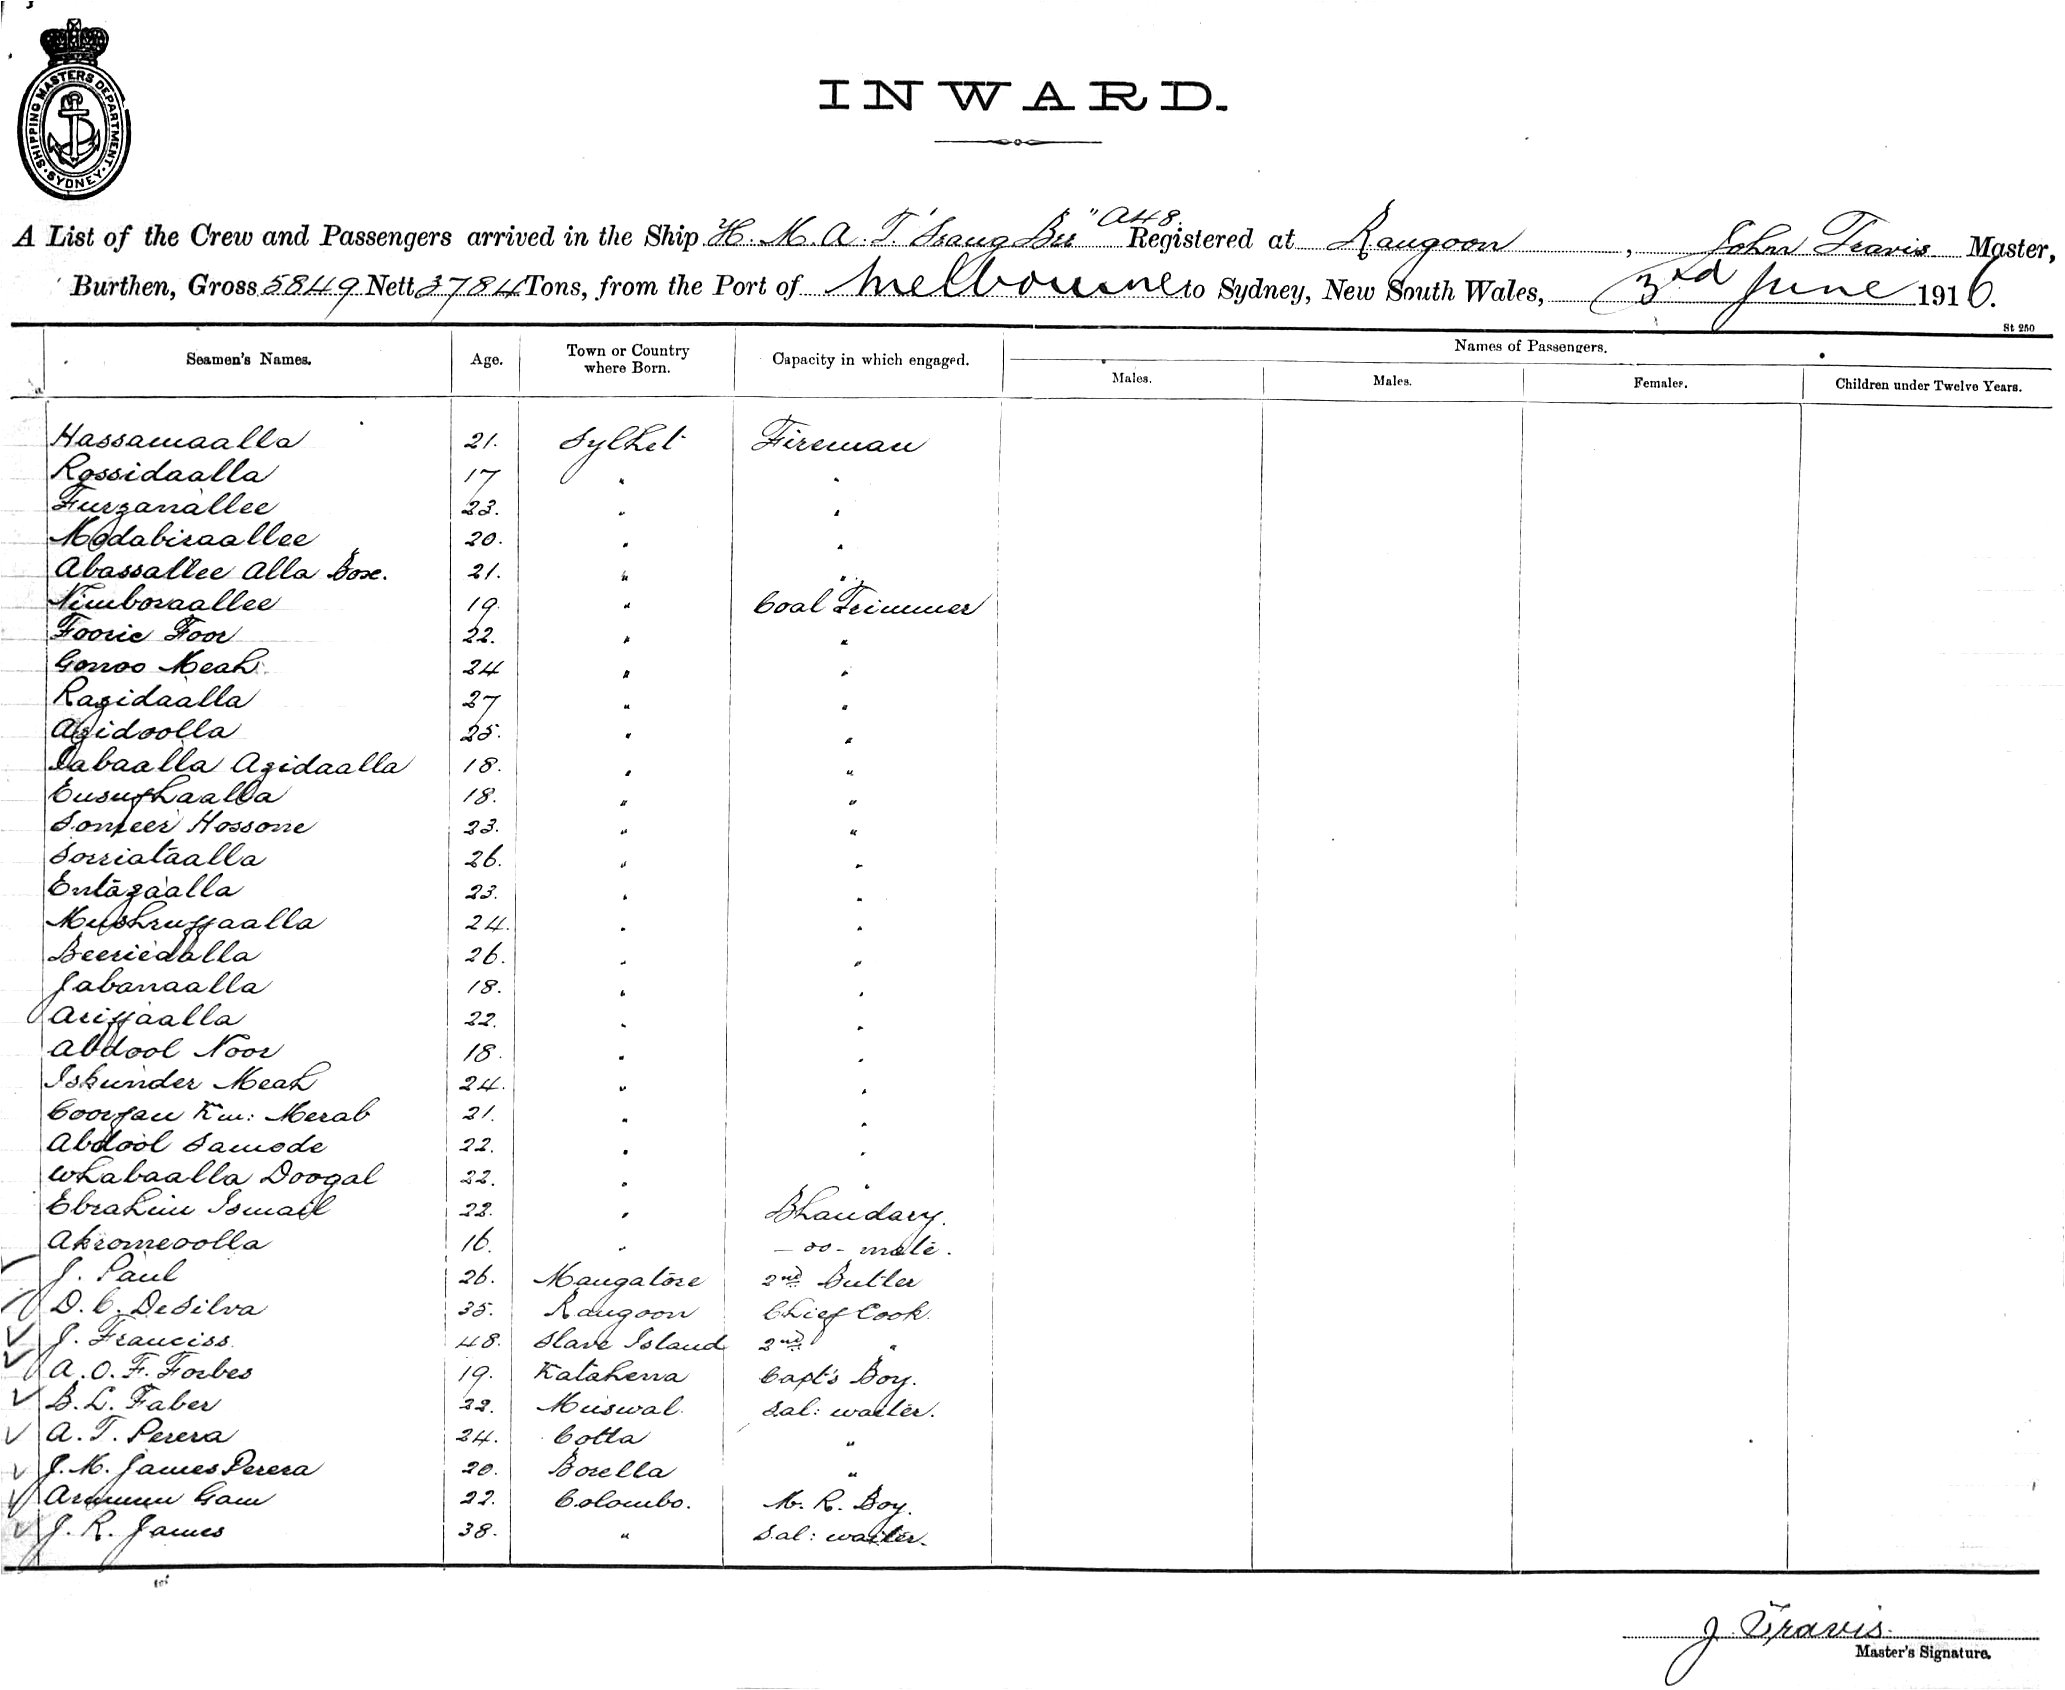 SHIPPING MASTERS DEPARTMENT. SYDNEY.
INWARD.
A List of the Crew and Passengers arrived in the Ship H. M. A. T. "Seang Bee" A48. Registered at Rangoon, John Travis Master,
Burthen, Gross 5849 Nett 3784 Tons, from the Port of Melbourne to Sydney, New South Wales, 3rd June 1916.
St 250
Seamen's Names. Age. Town or Country where Born. Capacity in which engaged. Names of Passengers.
Males. Males. Females. Children under Twelve Years.
Hassamaalla 21. Sylhet Fireman
Rossidaalla 17 " "
Furzanallee 23. " "
Modabiraallee 20. " "
Abassallee Alla Box. 21. " "
Nimboraallee 19. " Coal Trimmer
Foorie Foor 22. " "
Gonoo Meah 24 " "
Razidaalla 27 " "
Azidoolla 25. " "
Dabaalla Azidaalla 18. " "
Eusufhaalla 18. " "
Someer Hossone 23. " "
Sorriataalla 26. " "
Entazaalla 23. " "
Mushruffaalla 24. " "
Beeriedalla 26. " "
Jabanaalla 18. " "
Ariffaalla 22. " "
Abdool Noor 18. " "
Iskunder Meah 24. " "
Coorjau Km: Merab 21. " "
Abdool Samode 22. " "
Whabaalla Doogal 22. " "
Ebrahim Ismail 22. " Bhandary.
Akromeoolla 16. " - do - mate.
J. Paul 26. Mangalore 2nd Butler
D. C. DeSilva 35. Rangoon Chief Cook.
J. Franciss. 48. Slave Island 2nd "
A. O. F. Forbes 19. Katahena Capt's Boy.
B. L. Faber 22. Muswal. Sal: waiter.
A. T. Perera 24. Cotta "
J. M. James Perera 20. Borella "
Gam 22. Colombo. M. R. Boy.
J. R. James 38. " Sal: waiter.
J. Travis.
Master's Signature.